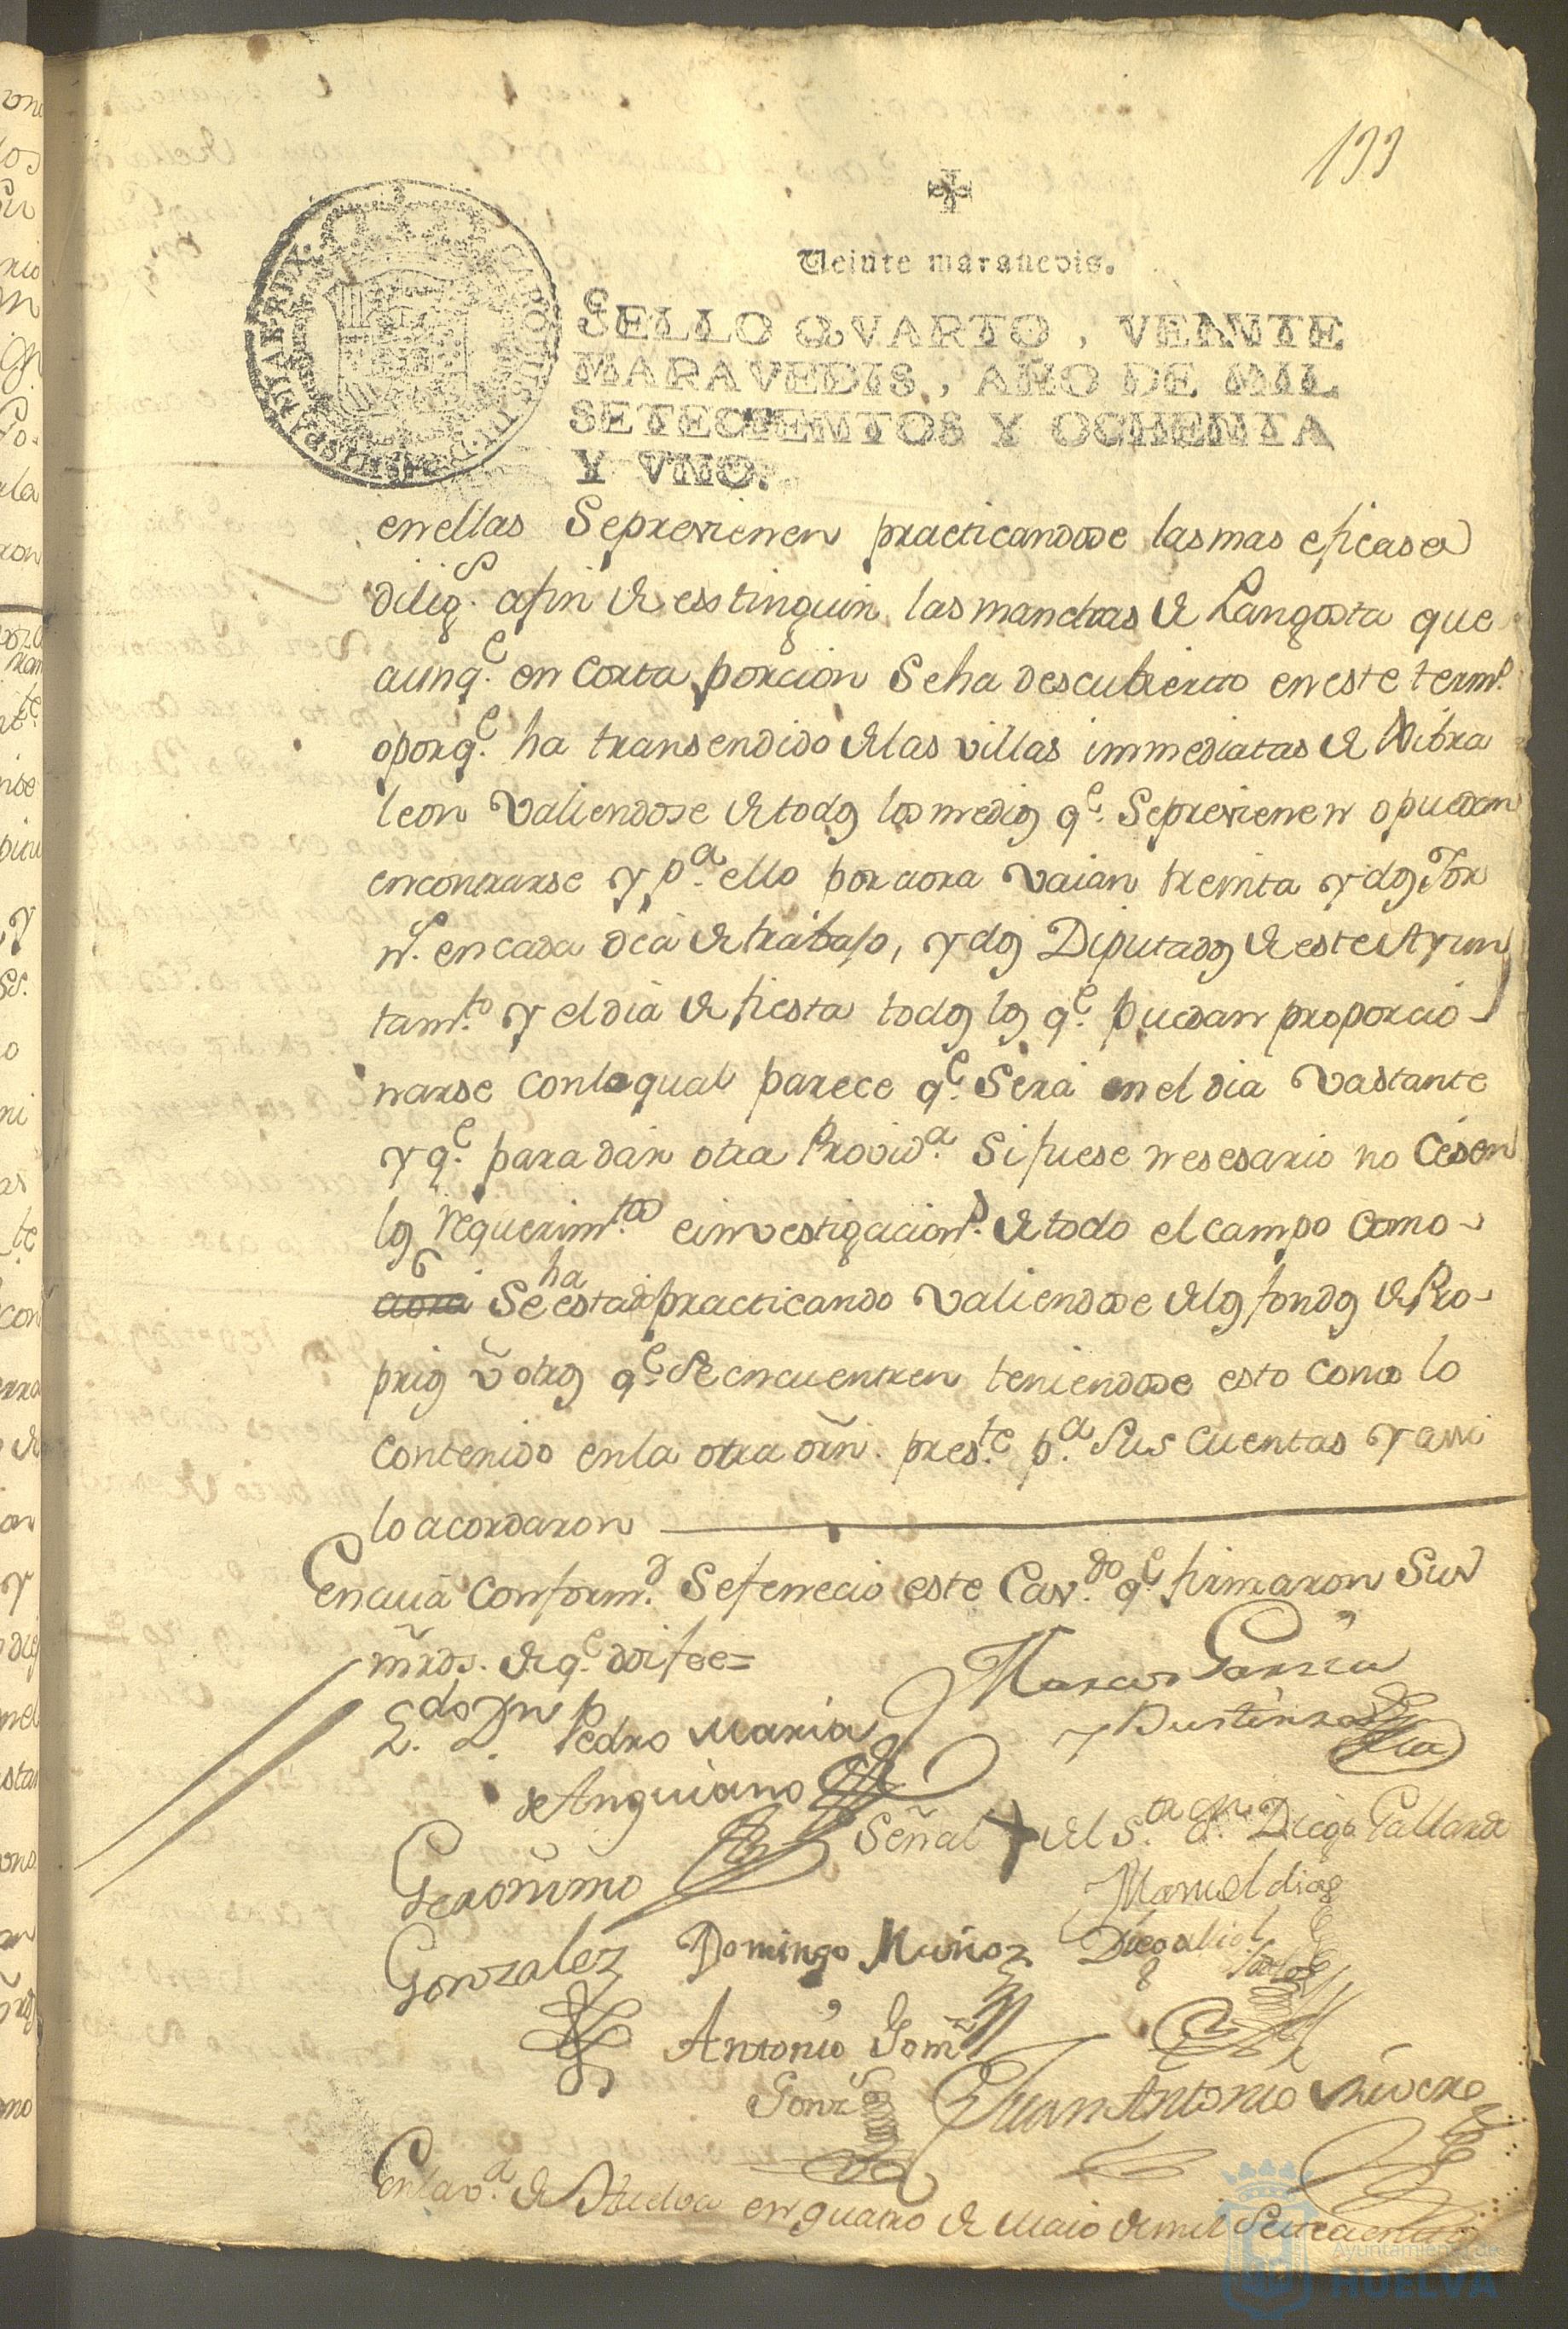 199
Veinte maravedis.
SELLO QVARTO, VEINTE
MARAVEDIS, AÑO DE MIL
SETECIENTOS Y OCHENTA
Y VNO.
en ellasSeprevienen practicandose las mas eficases
dilig.s afin de esstinguir las manchas de Langosta que
aunq.e en corta porcion Seha descubierto en este term.o
oporq.e ha transendido de las villas immediatas de Nibra
leon Valiendose de todos los medios q.e Seprevienen o puedan
encontrarse y p.a ello por aora vaian treinta y dos Jor
n.s en cada dia de trabajo, y dos Diputados de este Ayun
tam.to y el dia de fiesta todos los q.e puedan proporcio-
narse con lo qual parece q.e Será en el dia vastante
y q.e para dár otra Provid.a Si fuese nesesario no césen
los requerim.tos e investigacion.s de todo el campo como-
aora Se ha estado practicando valiendose de los fondos de Pro-
prios ũ otros q.e Se encuentren teniendose esto como lo
contenido en la otra orñ. pres.te p.a sus cuentas y assi
lo acordaron
En cuia conform.d Se fenecio este Cav.do q.e firmaron Sus
mrds. de q.e doi fee=
L.do Dn Pedro Maria
de Anguiano
Marcos Garcia
y Bustinza
Señal + del S.or d.n Diego Gallardo
Geronimo
Gonzalez
Domingo Muñoz
Manuel diaz
Antonio Gom.z
Gonz.s
Juan Antonio Rivero
En la v.a de Huelva en quatro de Maio de mil Setecientos
Ayuntamiento de
HUELVA